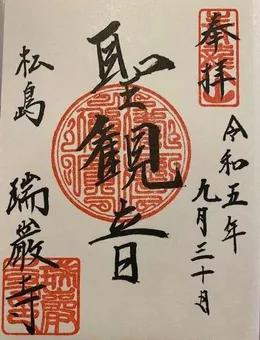 奉拝
令和五年
九月三十日
聖観音
松島
瑞巌寺